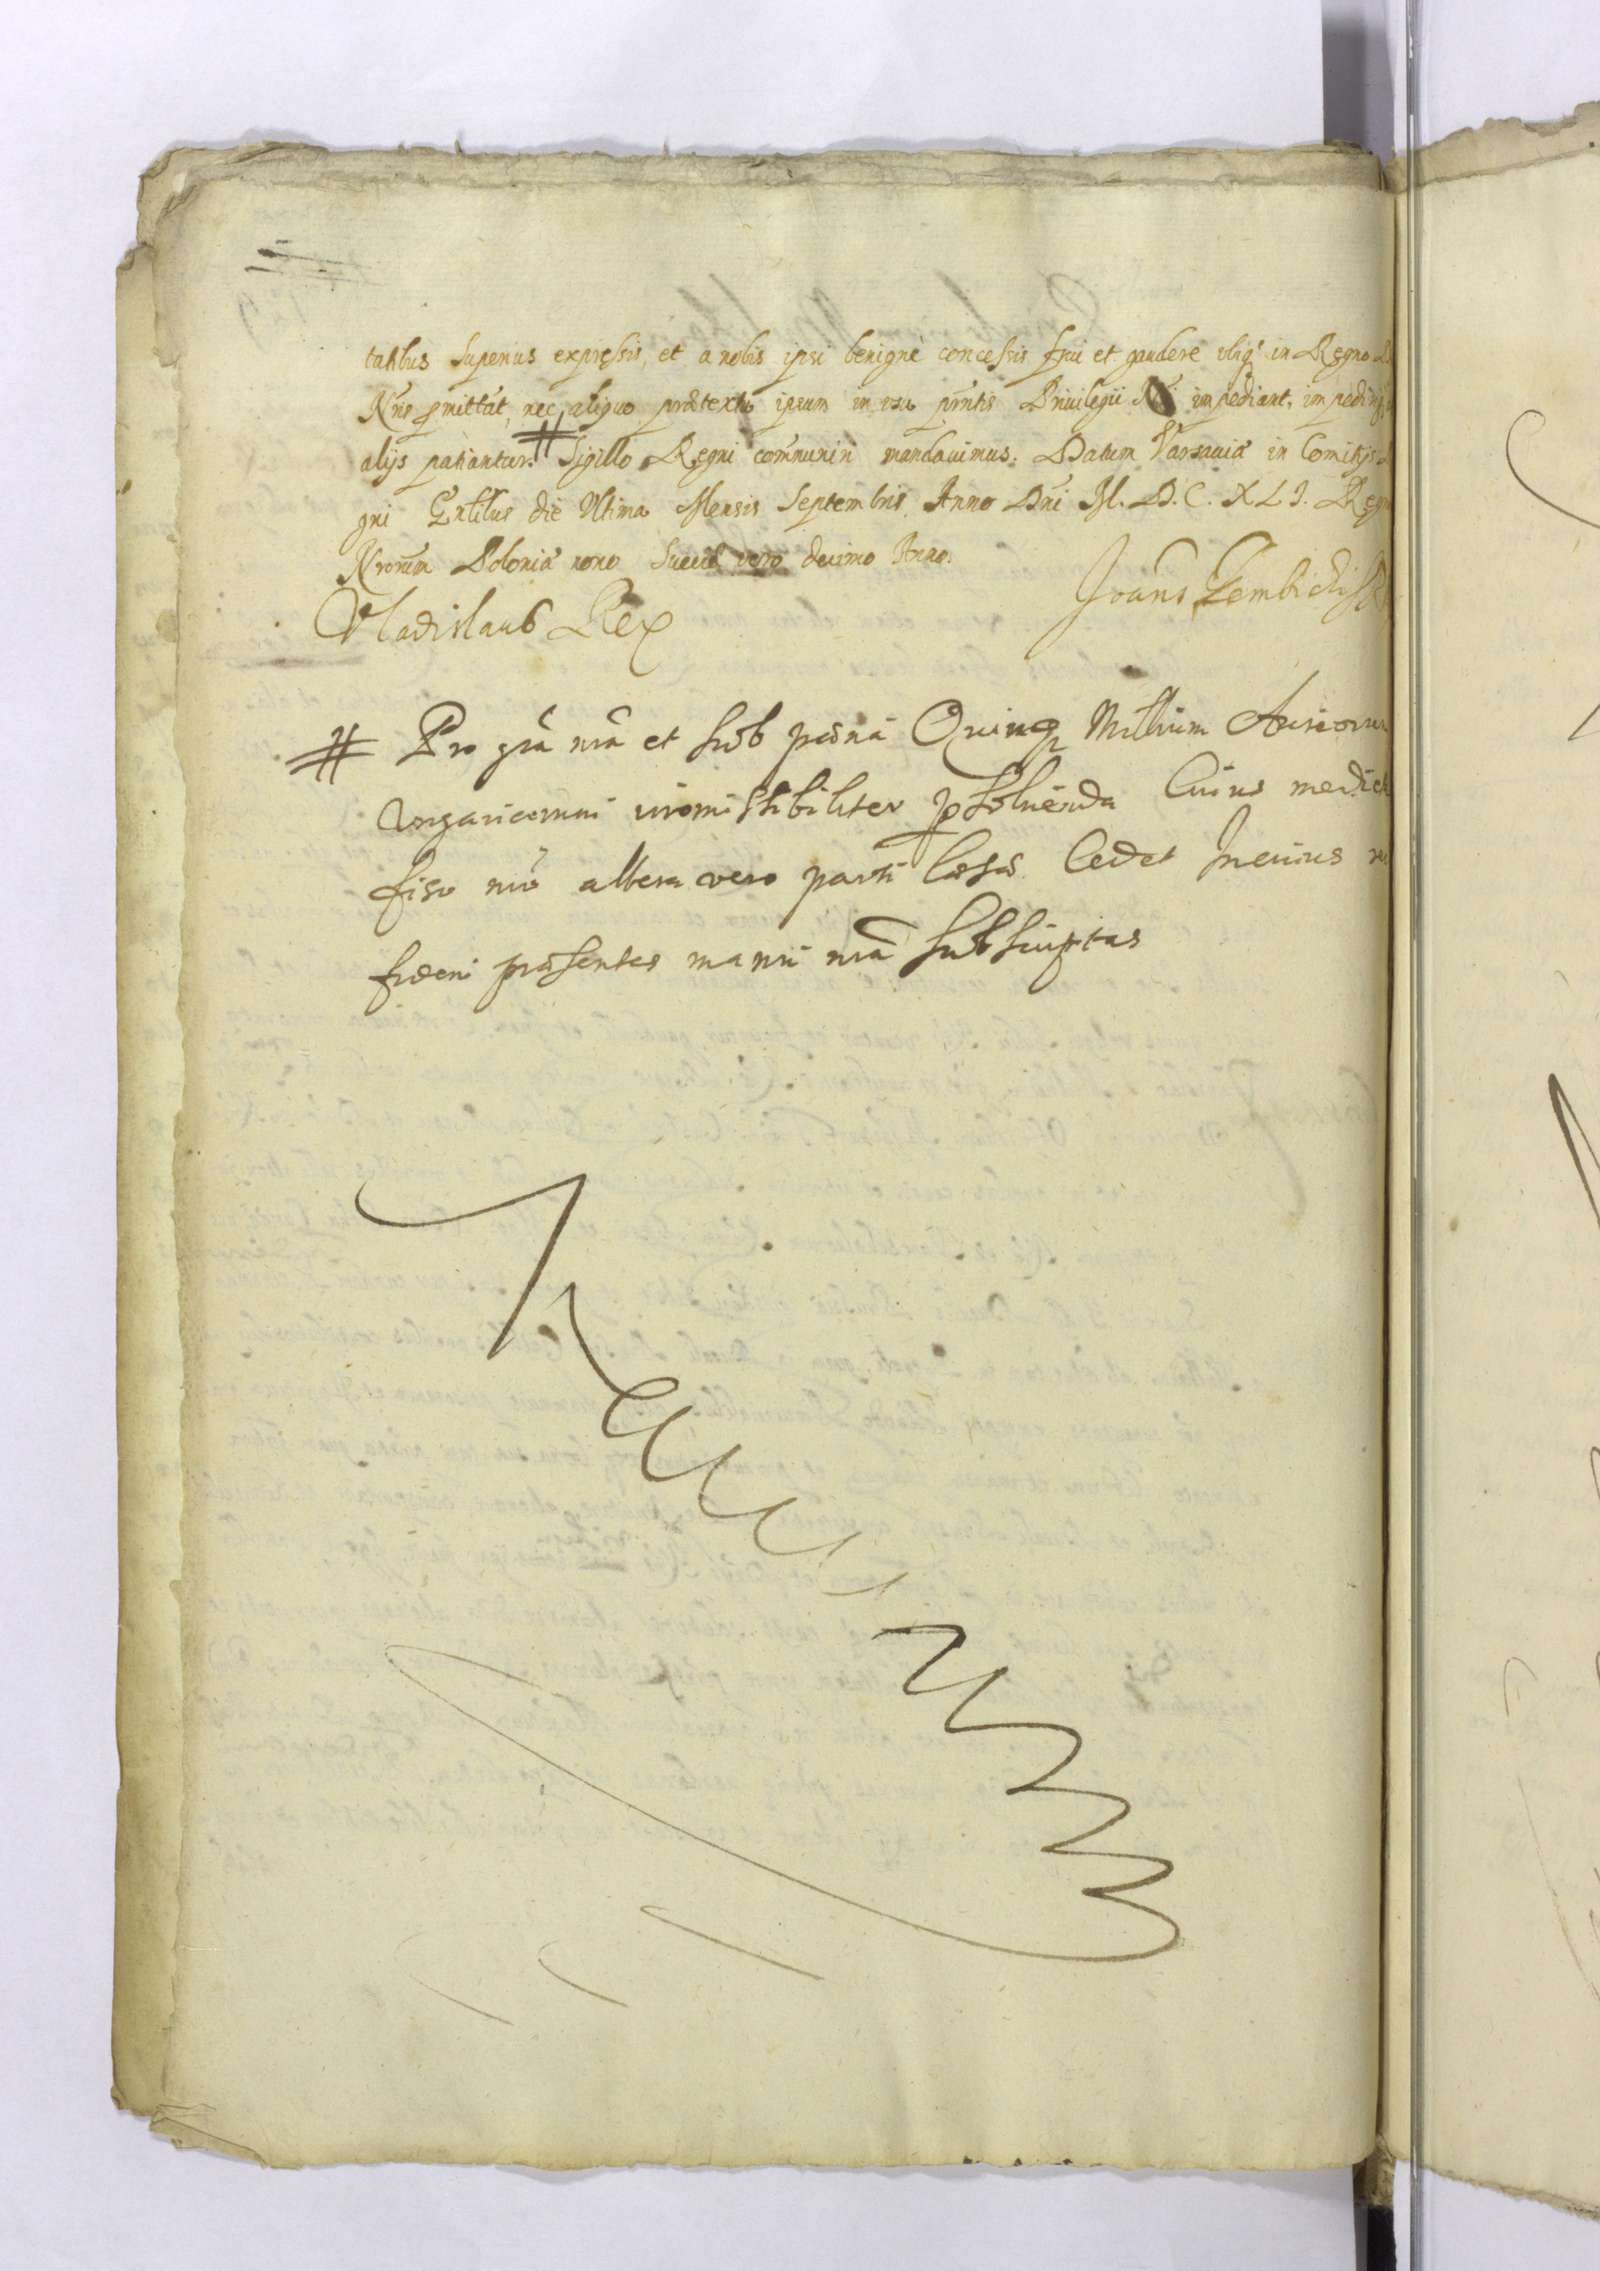 tatibus superius expressis, et a nobis ipsi benignè concessis frui et gaudere ubiq in Regno
Nro pmittāt, nec aliquo prætextu ipsum in usu pn̄tis Privilegii Nri impediant, impediriq
alijs patiantur. # Sigillo Regni com̄uniri mandavimus. Datum Varsaviæ in Comitijs
gni Gn̄libus die Ultima Mensis Septembris. Anno Dn̄i M.D.C.XLI. Regn
Nrorum Poloniæ nono Sueciæ vero decimo Anno.
Vladislaus Rex
Joan̄s Gembicki
# Pro grā nrā et sub pœna Quinq Millium Aureorum
Ungaricorum irremissibiliter psolvenda Cuius mediet
fisco nrō altera vero parti læsæ Cedet In cuius re
fidem præsentes manu nrā subscriptas